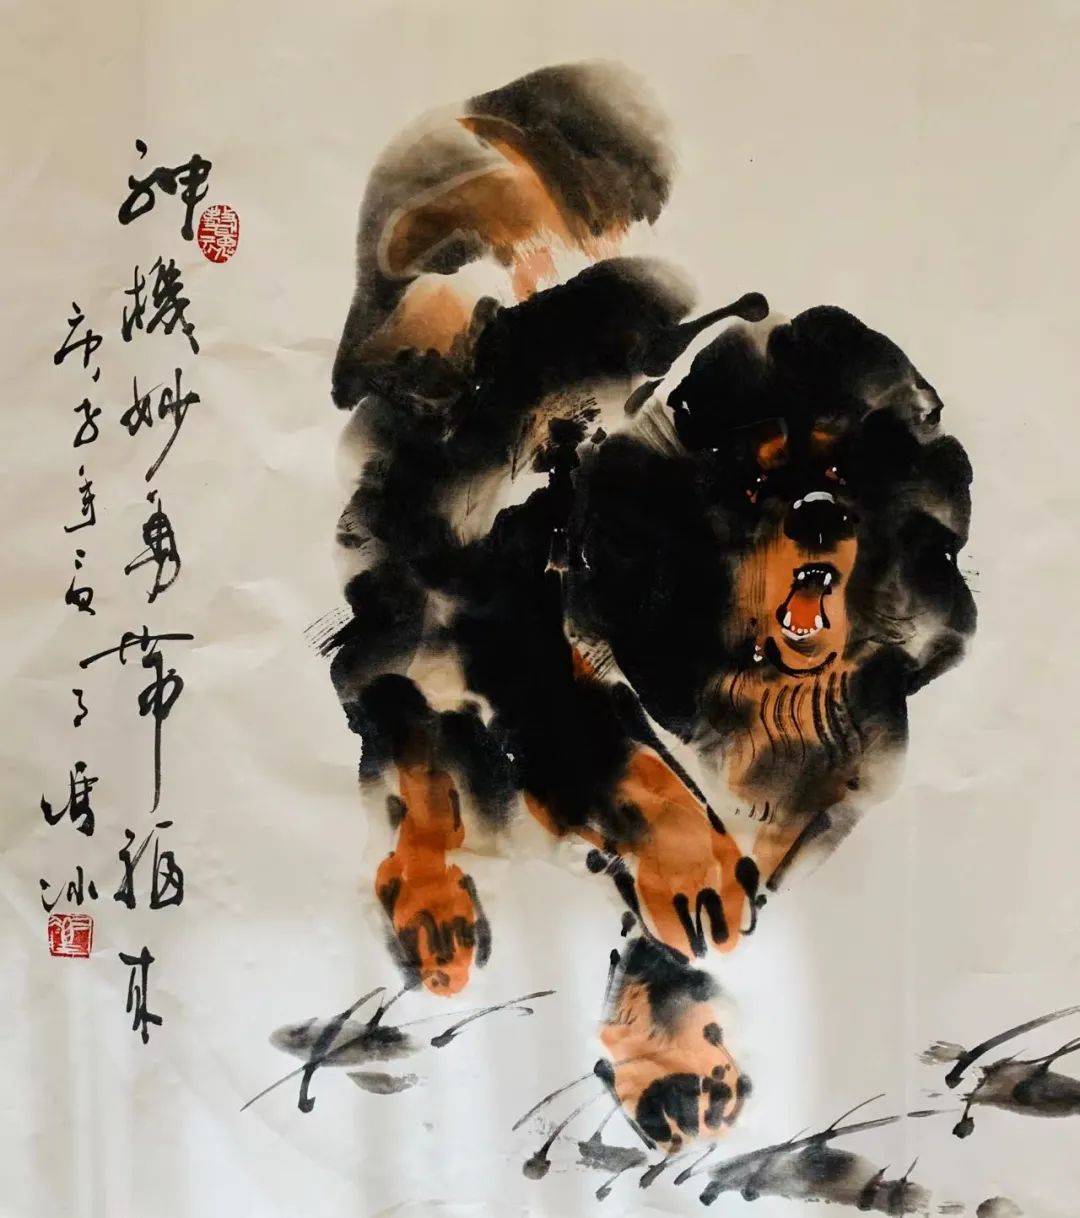 神機妙勇帶福來
庚子年夏月馮冰